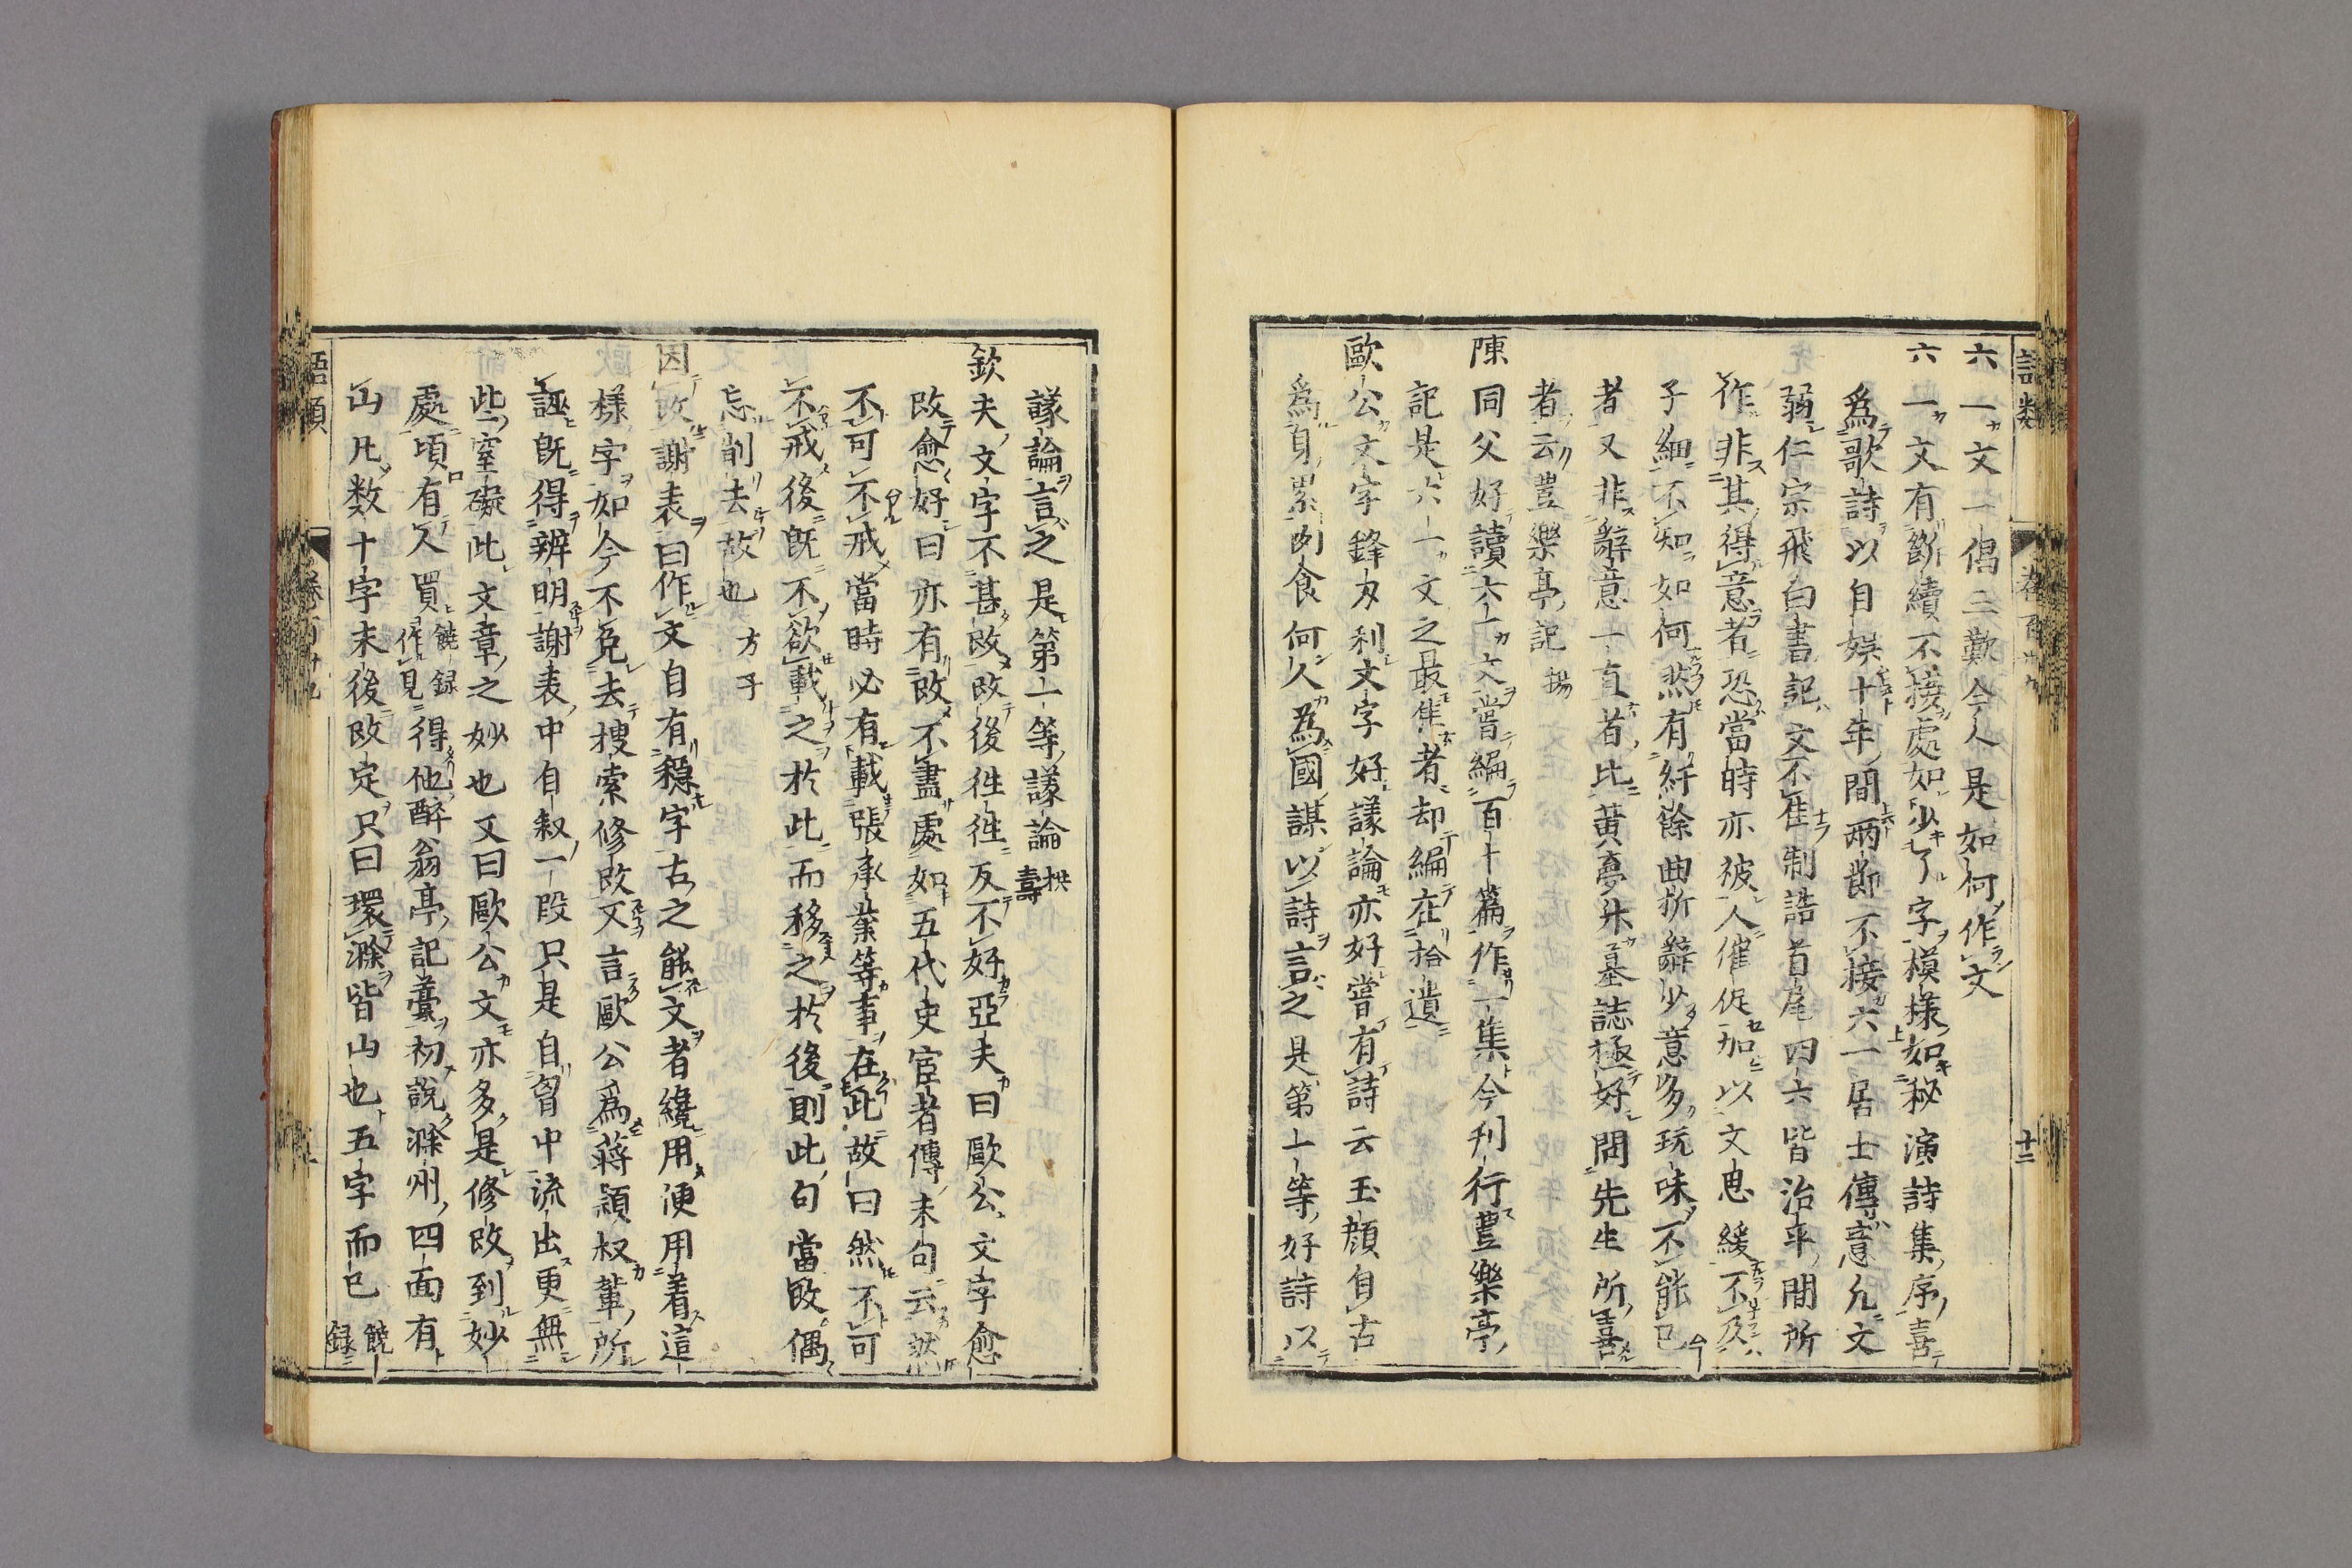 六一文一倡三歎今人是如何作文
六一文有斷續不接處如少了字模樣如秘演詩集序喜
爲歌詩以自娯十年間兩節不接六一居士傳意凡文
弱仁宗飛白書記文不佳制誥首尾四六皆治平間所
作非其得意者恐當時亦被人催促加以文思緩不及
子細不知如何然有紆餘曲折辭少意多玩味不能已
者又非辭意一直者比黄夢升墓誌極好問先生所喜
者云豊樂亭記 揚
陳同父好讀六一文嘗編百十篇作一集今刊行豊樂亭
記是六一文之最佳者却編在拾遺
歐公文字鋒刃利文字好議論亦好嘗有詩云玉顔自古
爲身累肉食何人爲國謀以詩言之是第一等好詩以
議論言之是第一等議論 拱壽
欽夫文字不甚改改後徃徃反不好亞夫曰歐公文字愈
改愈好曰亦有改不盡處如五代史宦者傳末句云然
不可不戒當時必有載張承業等事在此故曰然不可
不戒後旣不欲載之於此而移之於後則此句當改偶
忘削去故也 方子
因改謝表曰作文自有穩字古之能文者纔用便用着這
様字如今不免去搜索修改又言歐公爲蒋穎叔輩所
誣旣得辨明謝表中自叙一段只是自胷中流出更無
些窒礙此文章之妙也又曰歐公文亦多是修改到妙
處頃有人買得他醉翁亭記藁初說滁州四面有 饒録作見
山凡数十字末後改定只曰環滁皆山也五字而已 饒録
語類
卷百卅九
十二